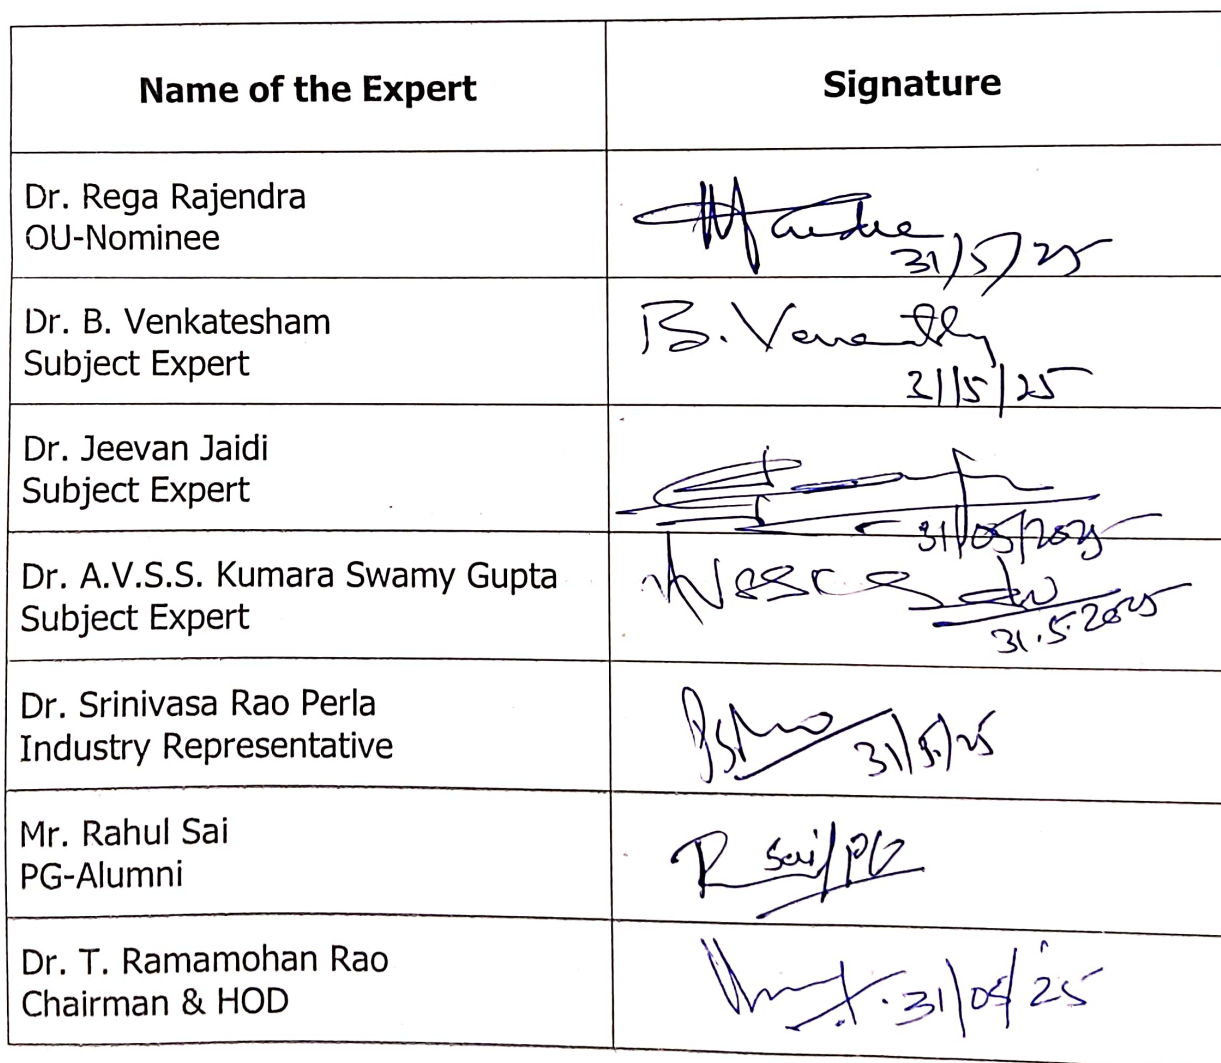 Name of the Expert
Signature
Dr. Rega Rajendra
OU-Nominee
31/5/25
Dr. B. Venkatesham
Subject Expert
B. Venkat
31/5/25
Dr. Jeevan Jaidi
Subject Expert
31/05/2025
Dr. A.V.S.S. Kumara Swamy Gupta
Subject Expert
31.5.2025
Dr. Srinivasa Rao Perla
Industry Representative
31/5/25
Mr. Rahul Sai
PG-Alumni
R Sai/PG
Dr. T. Ramamohan Rao
Chairman & HOD
31/05/25